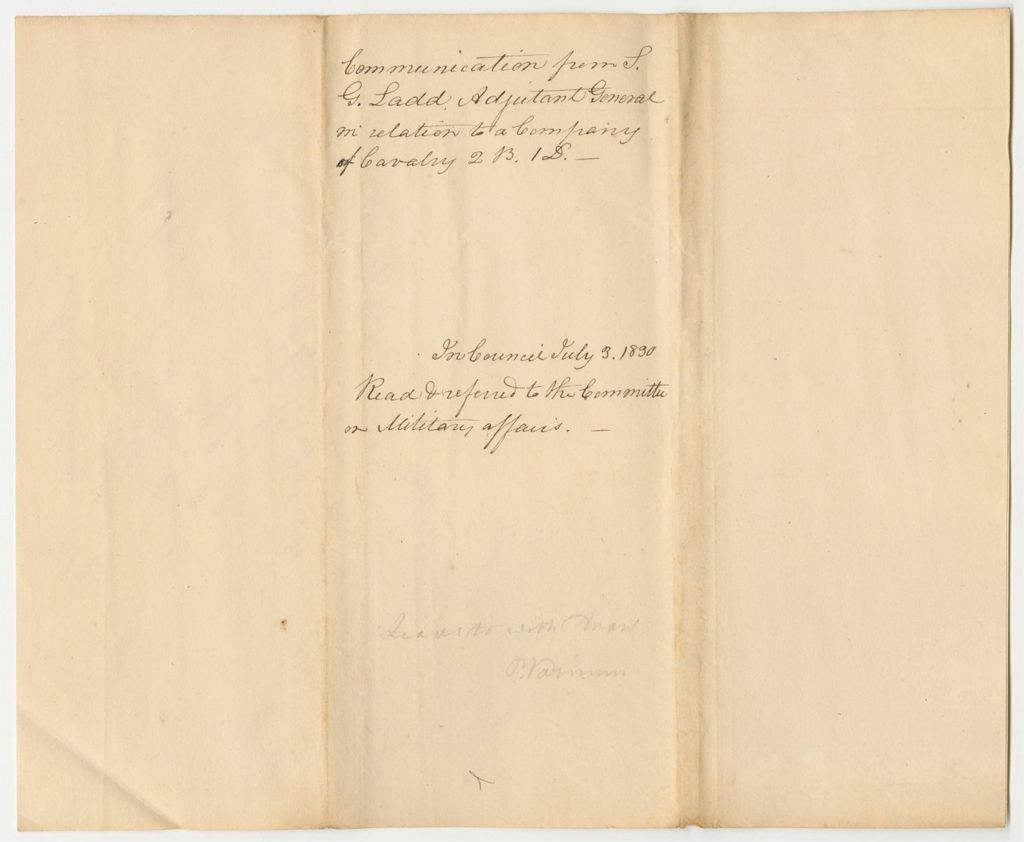 Communication from S.
G. Ladd, Adjutant General
in relation to a Company
of Cavalry 2 B. 1 D. —
In Council July 3. 1830
Read & referred to the Committee
on Military affairs. —
Leave to with Draw
P. Varnum